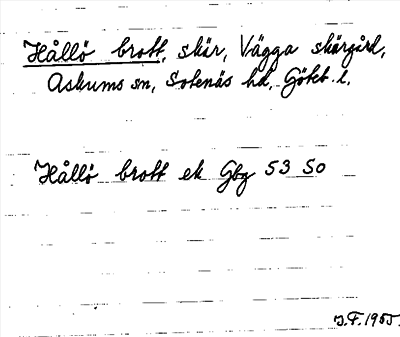 Hållö brott, skär, Vägga skärgård,
Askums sn, Sotenäs hd, Göteb. l.
Hållö brott ek Gbg 53 SO
J.F. 1955.